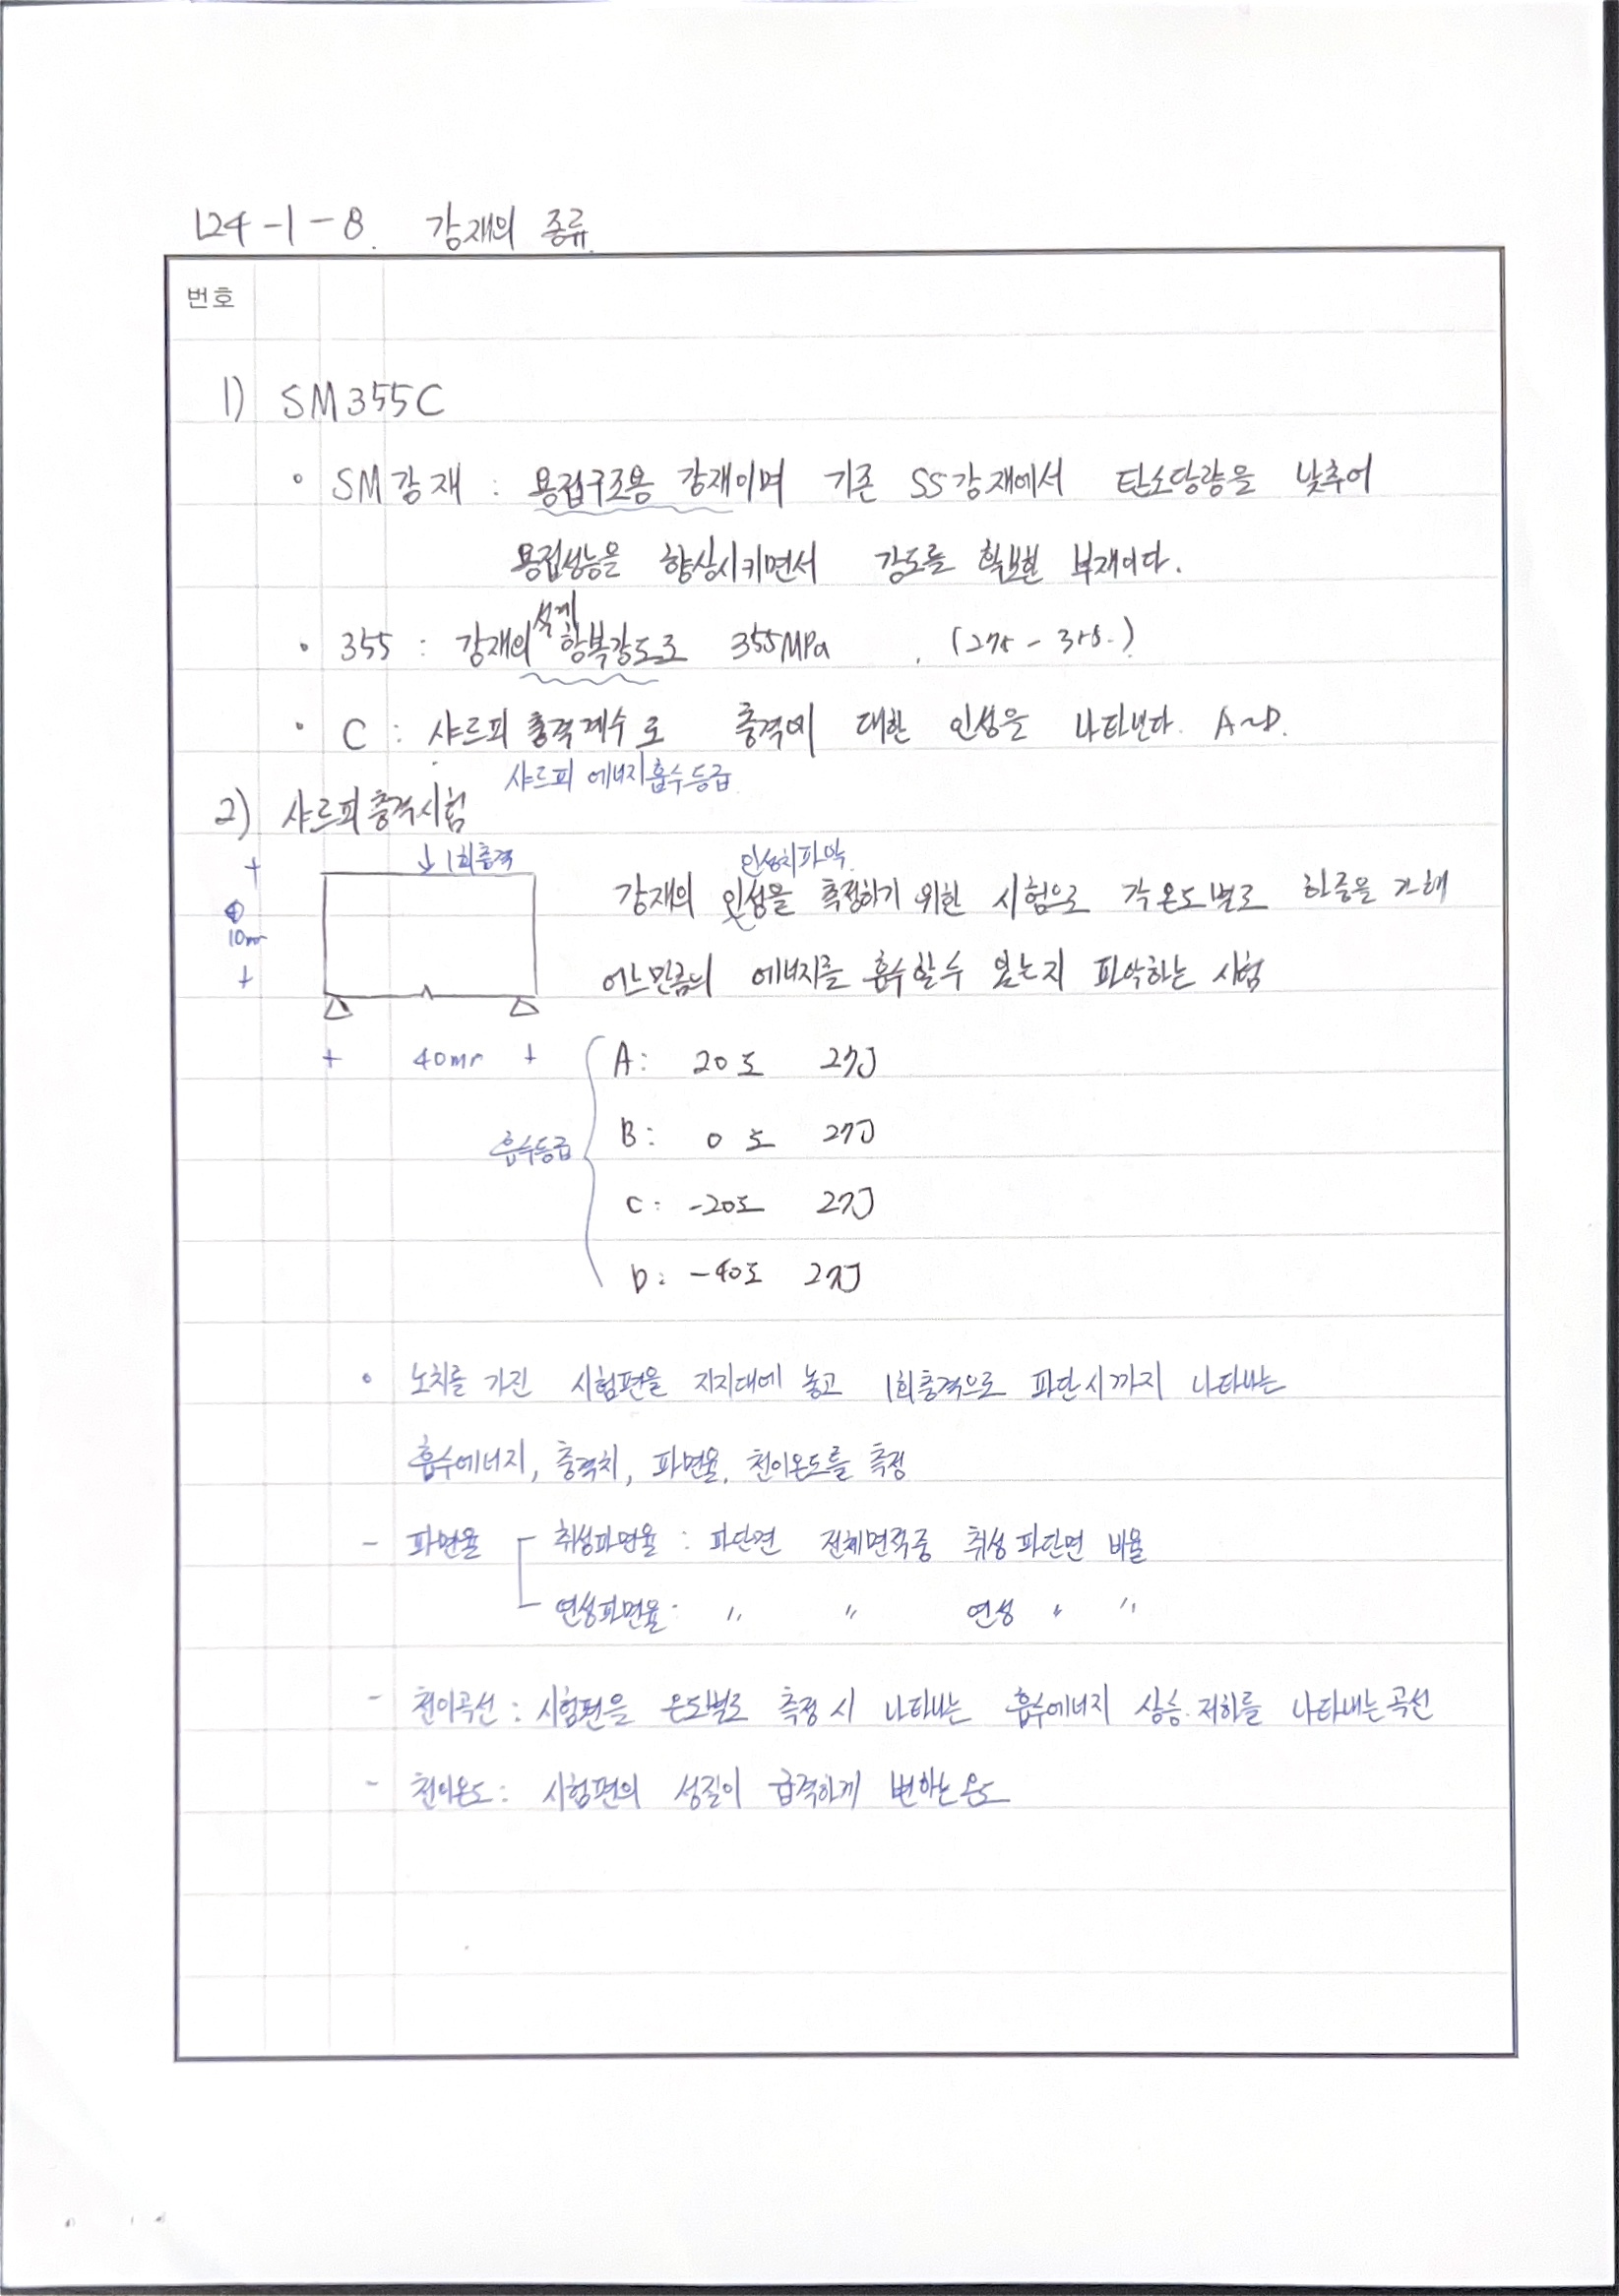 124-1-8. 강재의 종류.
번호
1) SM355C
• SM강재 : 용접구조용 강재이며 기존 SS강재에서 탄소당량을 낮추어
용접성능을 향상시키면서 강도를 확보한 부재이다.
설계
• 355 : 강재의 항복강도로 355MPa . (275 - 355.)
• C : 샤르피 충격계수로 충격에 대한 인성을 나타낸다. A~D.
샤르피 에너지흡수등급
2) 샤르피충격시험
↓ 1회충격
인성치파악
강재의 인성을 측정하기 위한 시험으로 각온도별로 하중을 가해
10mm
어느만큼의 에너지를 흡수할수 있는지 파악하는 시험
40mm
A: 20도 27J
B: 0도 27J
흡수등급
C: -20도 27J
D: -40도 27J
• 노치를 가진 시험편을 지지대에 놓고 1회충격으로 파단시까지 나타나는
흡수에너지, 충격치, 파면율, 천이온도를 측정
- 파면율 취성파면율 : 파단면 전체면적중 취성파단면 비율
연성파면율 : 〃 〃 연성 〃 〃
- 천이곡선 : 시험편을 온도별로 측정시 나타나는 흡수에너지 상승·저하를 나타내는곡선
- 천이온도 : 시험편의 성질이 급격하게 변하는온도